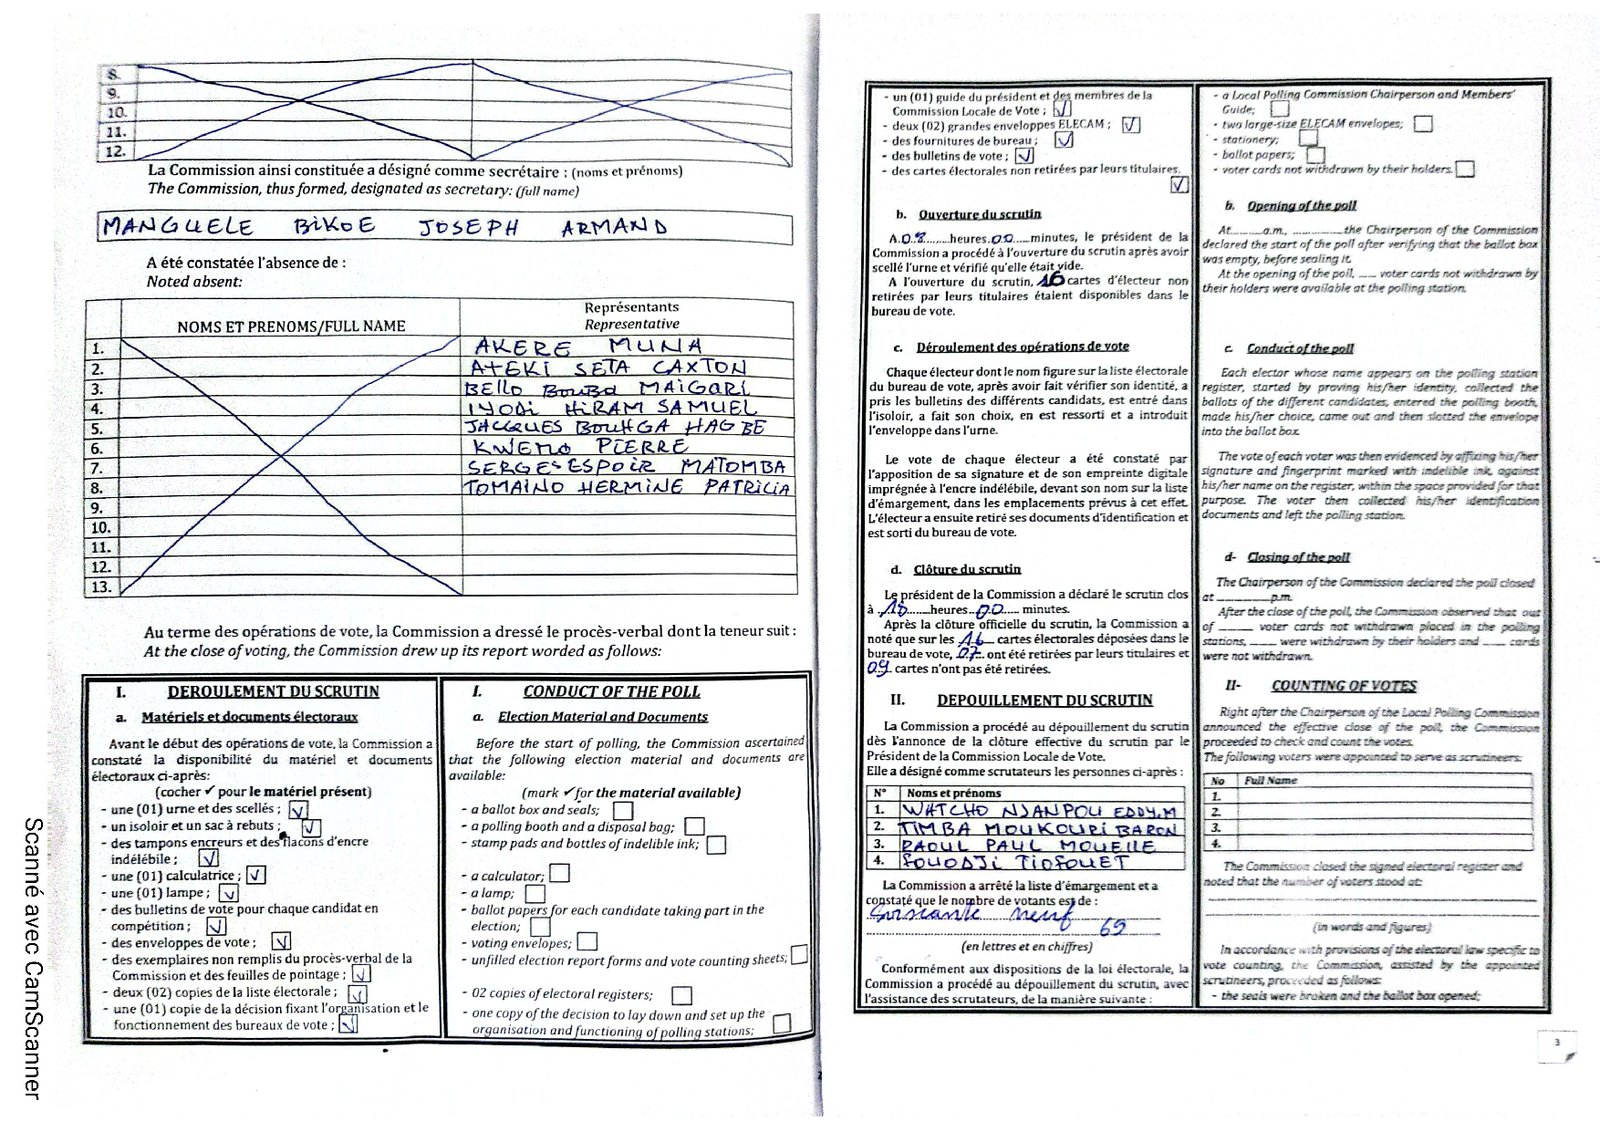 8.
9.
10.
11.
12.
La Commission ainsi constituée a désigné comme secrétaire : (noms et prénoms)
The Commission, thus formed, designated as secretary: (full name)
MANGUELE BIKOE JOSEPH ARMAND
A été constatée l'absence de :
Noted absent:
NOMS ET PRENOMS/FULL NAME
Représentants
Representative
1. AKERE MUNA
2. ATEKI SETA CAXTON
3. BELLO BOUBA MAIGARI
4. IYODI HIRAM SAMUEL
5. JACQUES BOUHGA HAGBE
6. KWEMO PIERRE
7. SERGE ESPOIR MATOMBA
8. TOMAINO HERMINE PATRICIA
9.
10.
11.
12.
13.
Au terme des opérations de vote, la Commission a dressé le procès-verbal dont la teneur suit :
At the close of voting, the Commission drew up its report worded as follows:
I. DEROULEMENT DU SCRUTIN
a. Matériels et documents électoraux
Avant le début des opérations de vote, la Commission a
constaté la disponibilité du matériel et documents
électoraux ci-après:
(cocher ✓ pour le matériel présent)
- une (01) urne et des scellés ; ✓
- un isoloir et un sac à rebuts ; ✓
- des tampons encreurs et des flacons d'encre
indélébile ; ✓
- une (01) calculatrice ; ✓
- une (01) lampe ; ✓
- des bulletins de vote pour chaque candidat en
compétition ; ✓
- des enveloppes de vote ; ✓
- des exemplaires non remplis du procès-verbal de la
Commission et des feuilles de pointage ; ✓
- deux (02) copies de la liste électorale ; ✓
- une (01) copie de la décision fixant l'organisation et le
fonctionnement des bureaux de vote ; ✓
I. CONDUCT OF THE POLL
a. Election Material and Documents
Before the start of polling, the Commission ascertained
that the following election material and documents are
available:
(mark ✓ for the material available)
- a ballot box and seals;
- a polling booth and a disposal bag;
- stamp pads and bottles of indelible ink;
- a calculator;
- a lamp;
- ballot papers for each candidate taking part in the
election;
- voting envelopes;
- unfilled election report forms and vote counting sheets;
- 02 copies of electoral registers;
- one copy of the decision to lay down and set up the
organisation and functioning of polling stations;
2
- un (01) guide du président et des membres de la
Commission Locale de Vote ; ✓
- deux (02) grandes enveloppes ELECAM ; ✓
- des fournitures de bureau ; ✓
- des bulletins de vote ; ✓
- des cartes électorales non retirées par leurs titulaires.
✓
b. Ouverture du scrutin
A 08 heures 00 minutes, le président de la
Commission a procédé à l'ouverture du scrutin après avoir
scellé l'urne et vérifié qu'elle était vide.
A l'ouverture du scrutin, 16 cartes d'électeur non
retirées par leurs titulaires étaient disponibles dans le
bureau de vote.
c. Déroulement des opérations de vote
Chaque électeur dont le nom figure sur la liste électorale
du bureau de vote, après avoir fait vérifier son identité, a
pris les bulletins des différents candidats, est entré dans
l'isoloir, a fait son choix, en est ressorti et a introduit
l'enveloppe dans l'urne.
Le vote de chaque électeur a été constaté par
l'apposition de sa signature et de son empreinte digitale
imprégnée à l'encre indélébile, devant son nom sur la liste
d'émargement, dans les emplacements prévus à cet effet.
L'électeur a ensuite retiré ses documents d'identification et
est sorti du bureau de vote.
d. Clôture du scrutin
Le président de la Commission a déclaré le scrutin clos
à 18 heures 00 minutes.
Après la clôture officielle du scrutin, la Commission a
noté que sur les 16 cartes électorales déposées dans le
bureau de vote, 07 ont été retirées par leurs titulaires et
09 cartes n'ont pas été retirées.
II. DEPOUILLEMENT DU SCRUTIN
La Commission a procédé au dépouillement du scrutin
dès l'annonce de la clôture effective du scrutin par le
Président de la Commission Locale de Vote.
Elle a désigné comme scrutateurs les personnes ci-après :
N° Noms et prénoms
1. WATCHO NJANPOU EDDY.M
2. TIMBA MOUKOURI BARON
3. RAOUL PAUL MOUELLE
4. FOUODJI TIOFOUET
La Commission a arrêté la liste d'émargement et a
constaté que le nombre de votants est de :
Soixante neuf 69
(en lettres et en chiffres)
Conformément aux dispositions de la loi électorale, la
Commission a procédé au dépouillement du scrutin, avec
l'assistance des scrutateurs, de la manière suivante :
- a Local Polling Commission Chairperson and Members'
Guide;
- two large-size ELECAM envelopes;
- stationery;
- ballot papers;
- voter cards not withdrawn by their holders.
b. Opening of the poll
At........a.m., ............the Chairperson of the Commission
declared the start of the poll after verifying that the ballot box
was empty, before sealing it.
At the opening of the poll, ..... voter cards not withdrawn by
their holders were available at the polling station.
c. Conduct of the poll
Each elector whose name appears on the polling station
register, started by proving his/her identity, collected the
ballots of the different candidates, entered the polling booth,
made his/her choice, came out and then slotted the envelope
into the ballot box.
The vote of each voter was then evidenced by affixing his/her
signature and fingerprint marked with indelible ink, against
his/her name on the register, within the space provided for that
purpose. The voter then collected his/her identification
documents and left the polling station.
d- Closing of the poll
The Chairperson of the Commission declared the poll closed
at ..............p.m.
After the close of the poll, the Commission observed that out
of ........ voter cards not withdrawn placed in the polling
stations, ...... were withdrawn by their holders and ...... cards
were not withdrawn.
II- COUNTING OF VOTES
Right after the Chairperson of the Local Polling Commission
announced the effective close of the poll, the Commission
proceeded to check and count the votes.
The following voters were appointed to serve as scrutineers:
No Full Name
1.
2.
3.
4.
The Commission closed the signed electoral register and
noted that the number of voters stood at:
(in words and figures)
In accordance with provisions of the electoral law specific to
vote counting, the Commission, assisted by the appointed
scrutineers, proceeded as follows:
- the seals were broken and the ballot box opened;
3
Scanné avec CamScanner